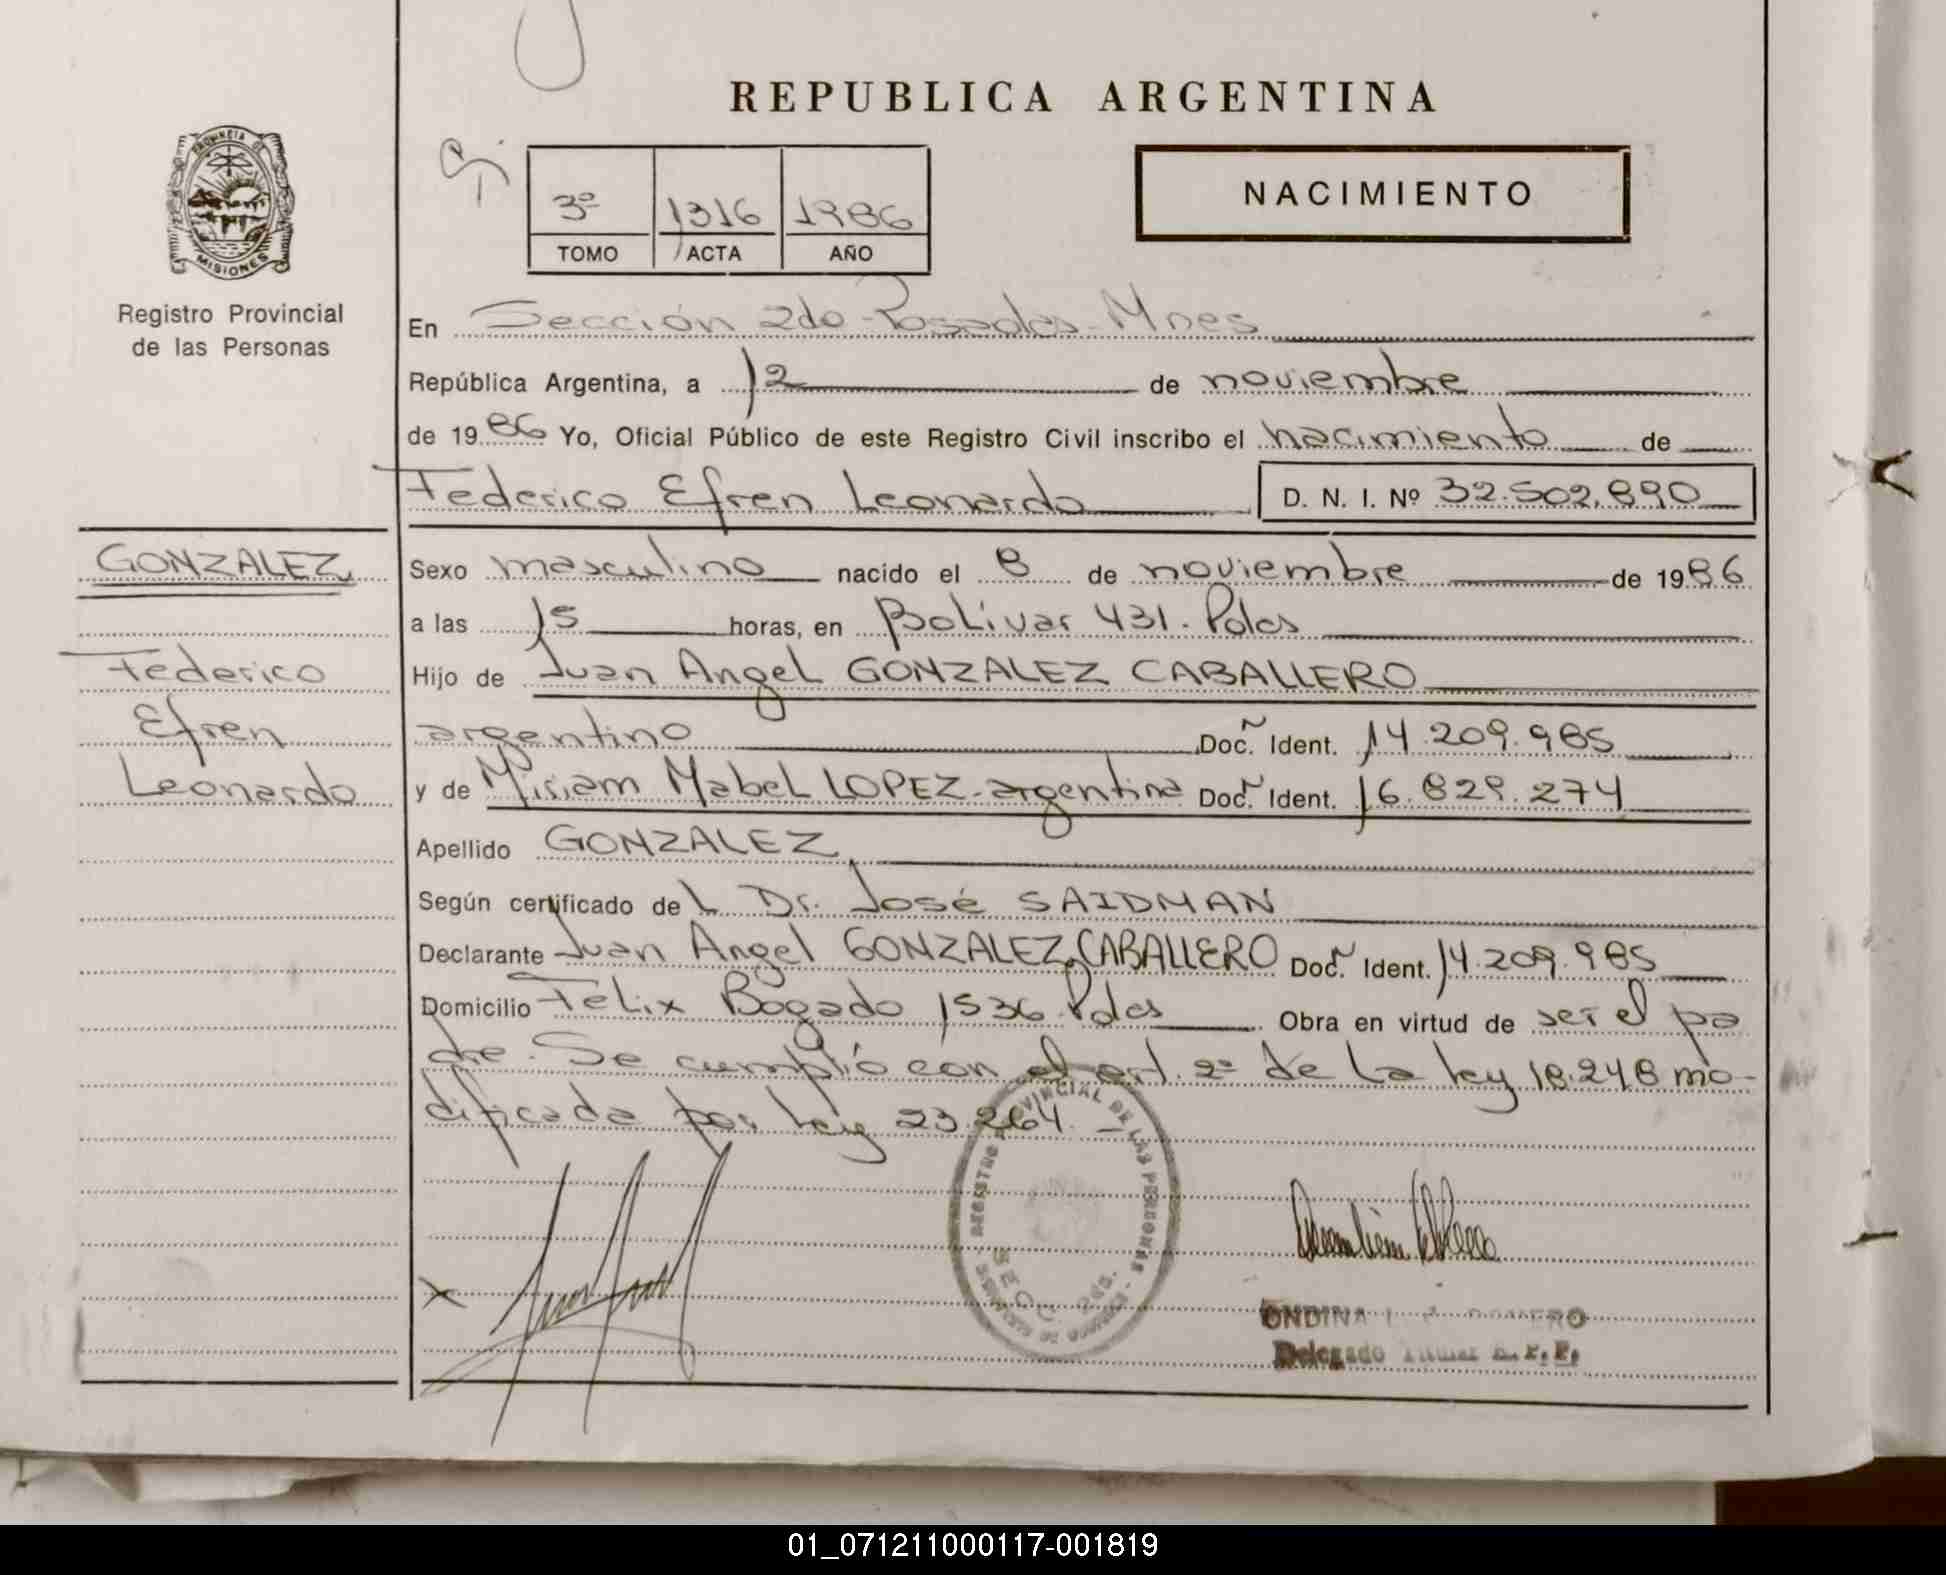 REPUBLICA ARGENTINA
PROVINCIA DE
MISIONES
Registro Provincial
de las Personas
3º 1316 1986
TOMO ACTA AÑO
NACIMIENTO
En Sección 2da - Posadas - Mnes
República Argentina, a 12 de noviembre
de 1986 Yo, Oficial Público de este Registro Civil inscribo el nacimiento de
Federico Efren Leonardo D. N. I. Nº 32.502.890
GONZALEZ
Federico
Efren
Leonardo
Sexo masculino nacido el 8 de noviembre de 1986
a las 15 horas, en Bolivar 431. Pdas
Hijo de Juan Angel GONZALEZ CABALLERO
argentino Doc. Ident. 14.209.985
y de Miriam Mabel LOPEZ - argentina Doc. Ident. 16.829.274
Apellido GONZALEZ
Según certificado del Dr. José SAIDMAN
Declarante Juan Angel GONZALEZ CABALLERO Doc. Ident. 14.209.985
Domicilio Felix Bogado 1536 Pdas Obra en virtud de ser el pa
dre. Se cumplió con el art. 2º de la ley 18.248 mo-
dificada por ley 23.264. -
REGISTRO PROVINCIAL DE LAS PERSONAS
ONDINA ROMERO
Delegado Titular R. P. P.
01_071211000117-001819